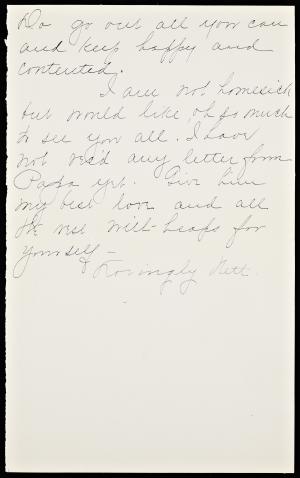 Do go out all you can
and keep happy and
contented.
I am not homesick
but would like, oh so much
to see you all. I have
not rec'd any letter from
Papa yet. Give him
my best love and all
the rest with heaps for
yourself –
Lovingly Nett.